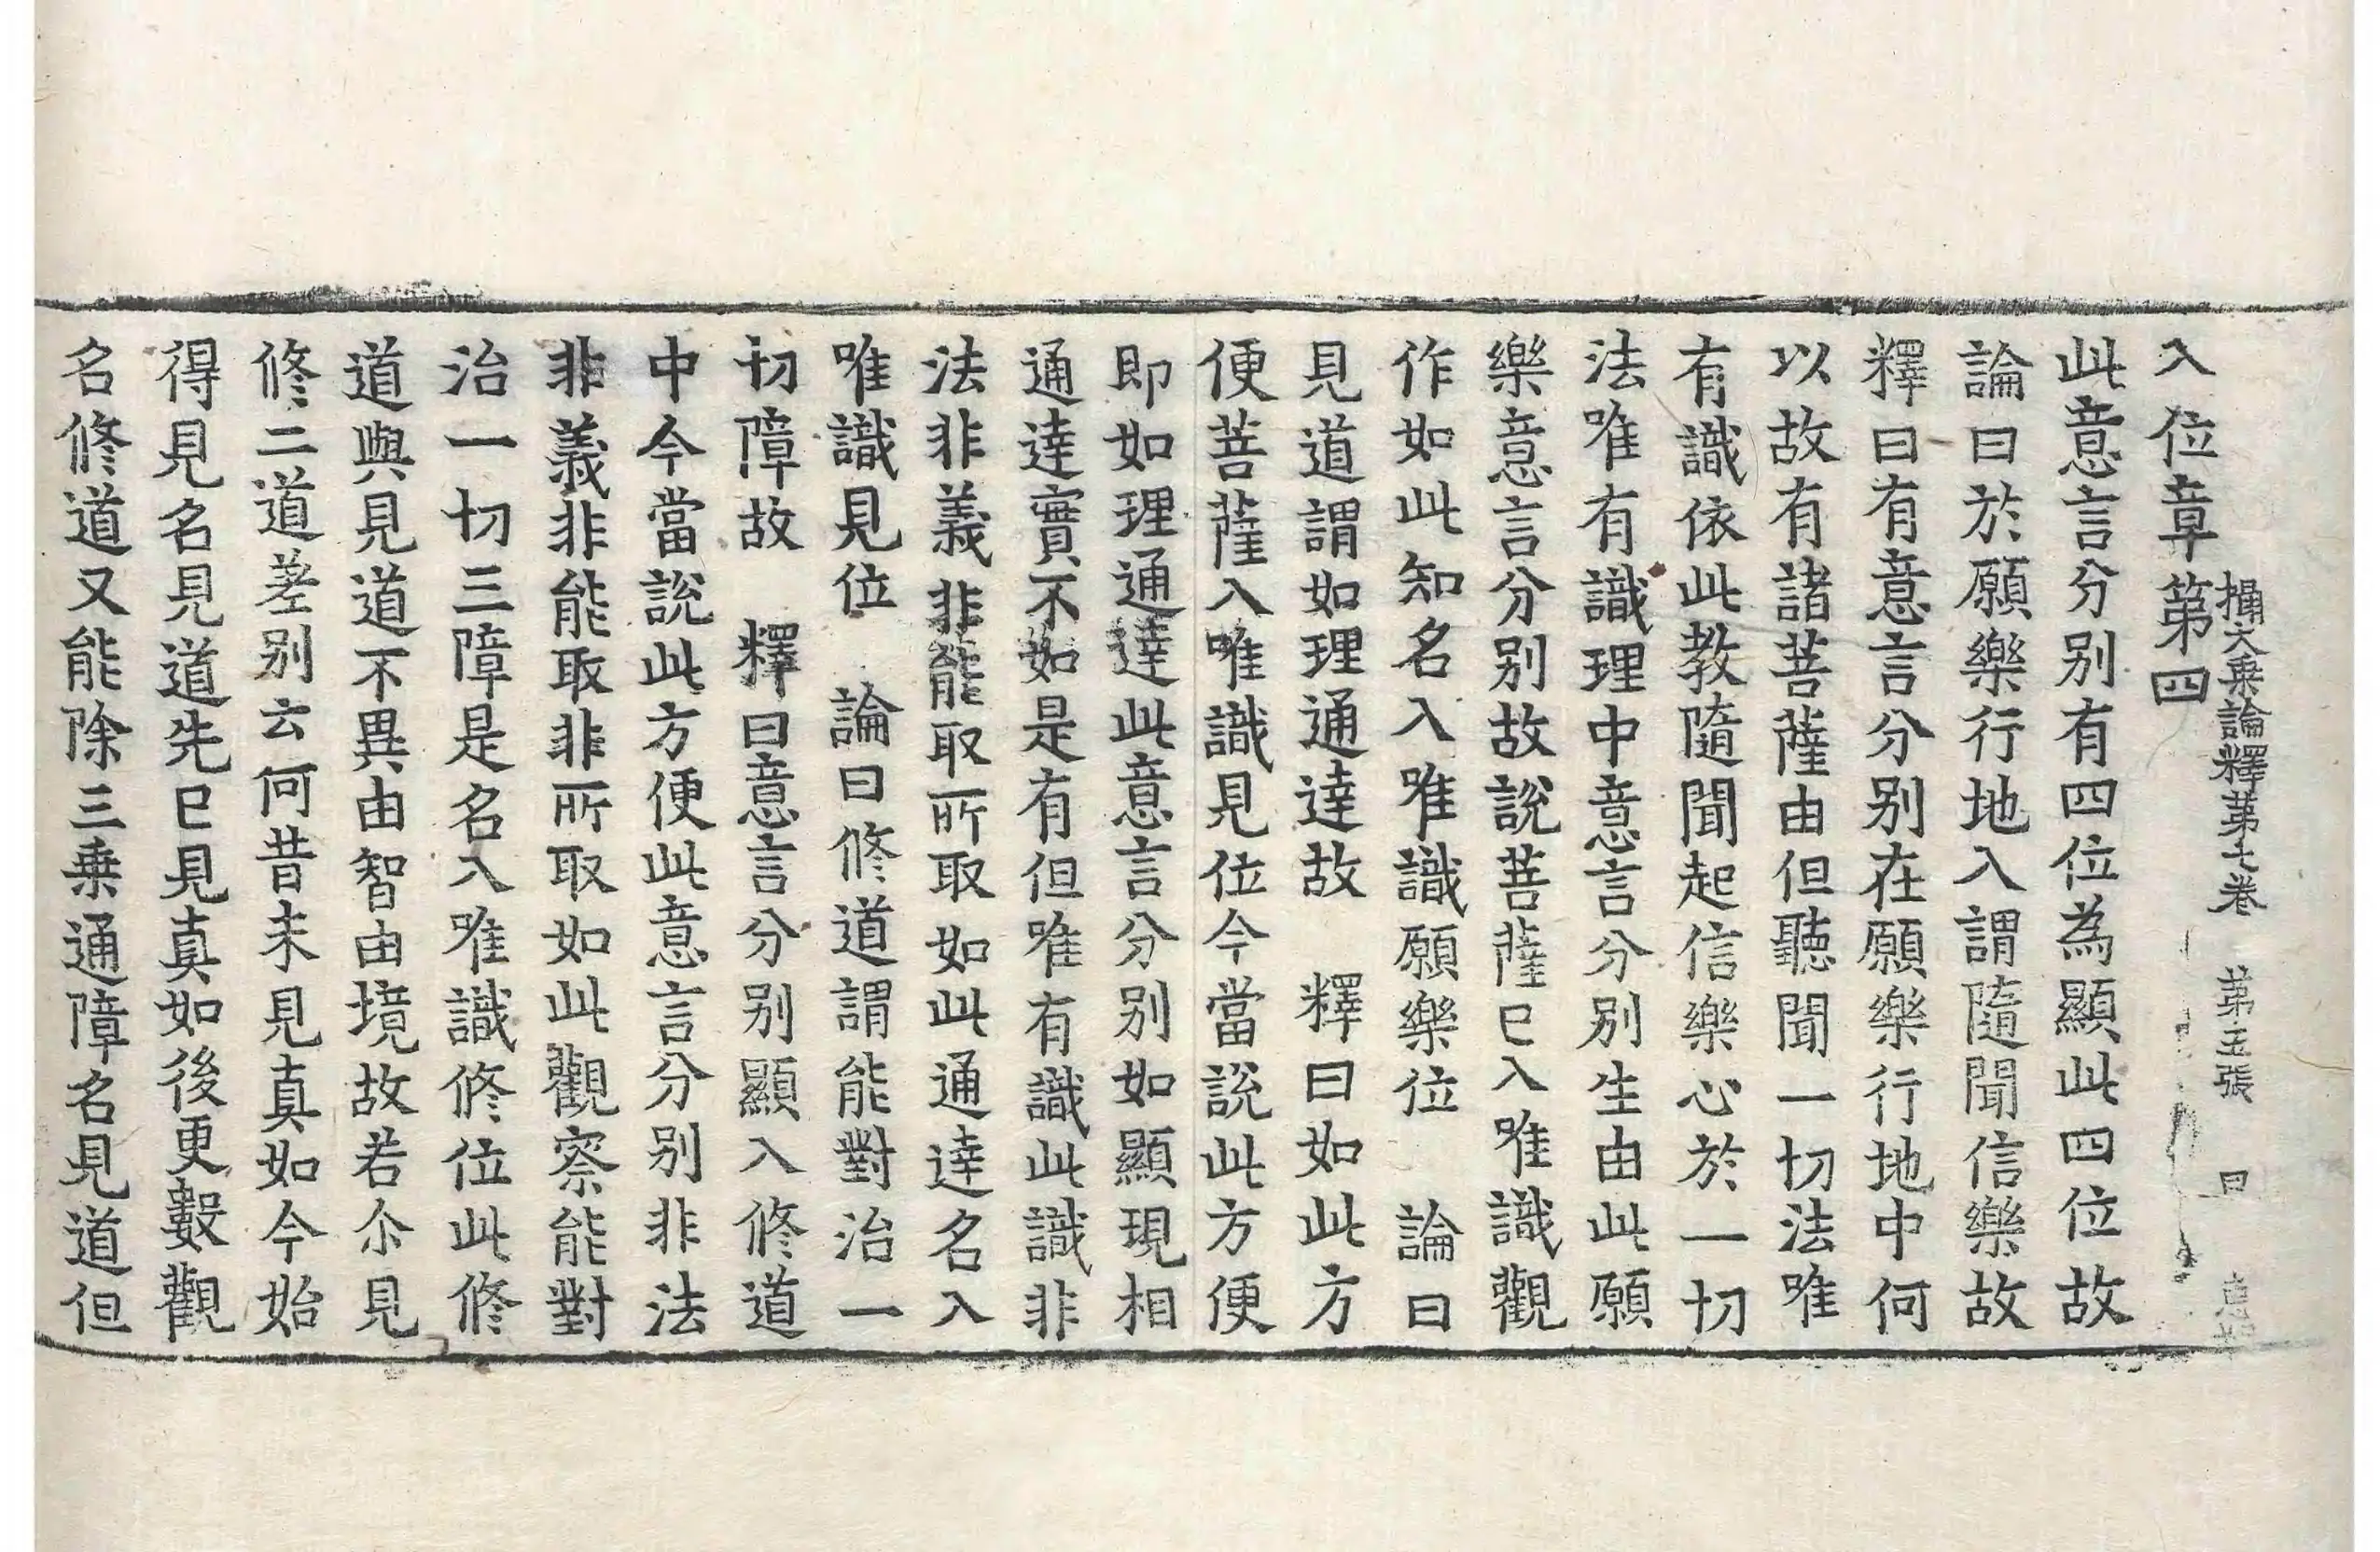 攝大乗論釋苐七卷　苐五張　曰
入位章第四
此意言分别有四位為顯此四位故
論曰於願樂行地入謂隨聞信樂故
釋曰有意言分别在願樂行地中何
以故有諸菩薩由但聽聞一切法唯
有識依此教隨聞起信樂心於一切
法唯有識理中意言分别生由此願
樂意言分别故說菩薩已入唯識觀
作如此知名入唯識願樂位　論曰
見道謂如理通達故　釋曰如此方
便菩薩入唯識見位今當說此方便
即如理通達此意言分别如顯現相
通達實不如是有但唯有識此識非
法非義非能取所取如此通達名入
唯識見位　論曰修道謂能對治一
切障故　釋曰意言分别顯入修道
中今當說此方便此意言分别非法
非義非能取非所取如此觀察能對
治一切三障是名入唯識修位此修
道與見道不異由智由境故若尒見
修二道差别云何昔未見真如今始
得見名見道先已見真如後更數觀
名修道又能除三乗通障名見道但